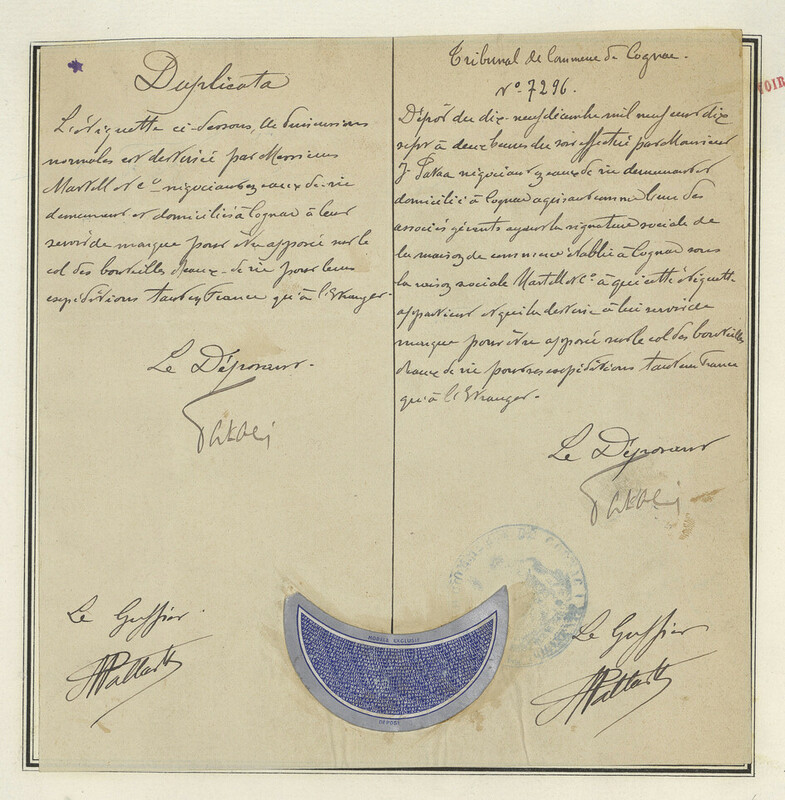 Duplicata
L'étiquette ci-dessous, de dimensions
normales est destinée par Messieurs
Martell & Cº négociants en eaux-de-vie
demeurant et domiciliés à Cognac à leur
servir de marque pour être apposée sur le
col des bouteilles d'eaux-de-vie pour leurs
expéditions tant en France qu'à l'Etranger.
Le Déposant.
Le Greffier.
Tribunal de Commerce de Cognac.
Nº 7296.
Dépôt du dix-neuf décembre mil neuf cent dix
sept à deux heures du soir effectué par Monsieur
J. négociant en eaux de vie demeurant et
domicilié à Cognac agissant comme l'un des
associés gérants ayant la signature sociale de
la maison de commerce établie à Cognac sous
la raison sociale Martell & Cº. à qui cette étiquette
appartient et qui la destine à lui servir de
marque pour être apposée sur le col des bouteilles
d'eaux de vie pour ses expéditions tant en France
qu'à l'Etranger.
Le Déposant
Le Greffier
MODELE EXCLUSIF
DÉPOSÉ
VOIR